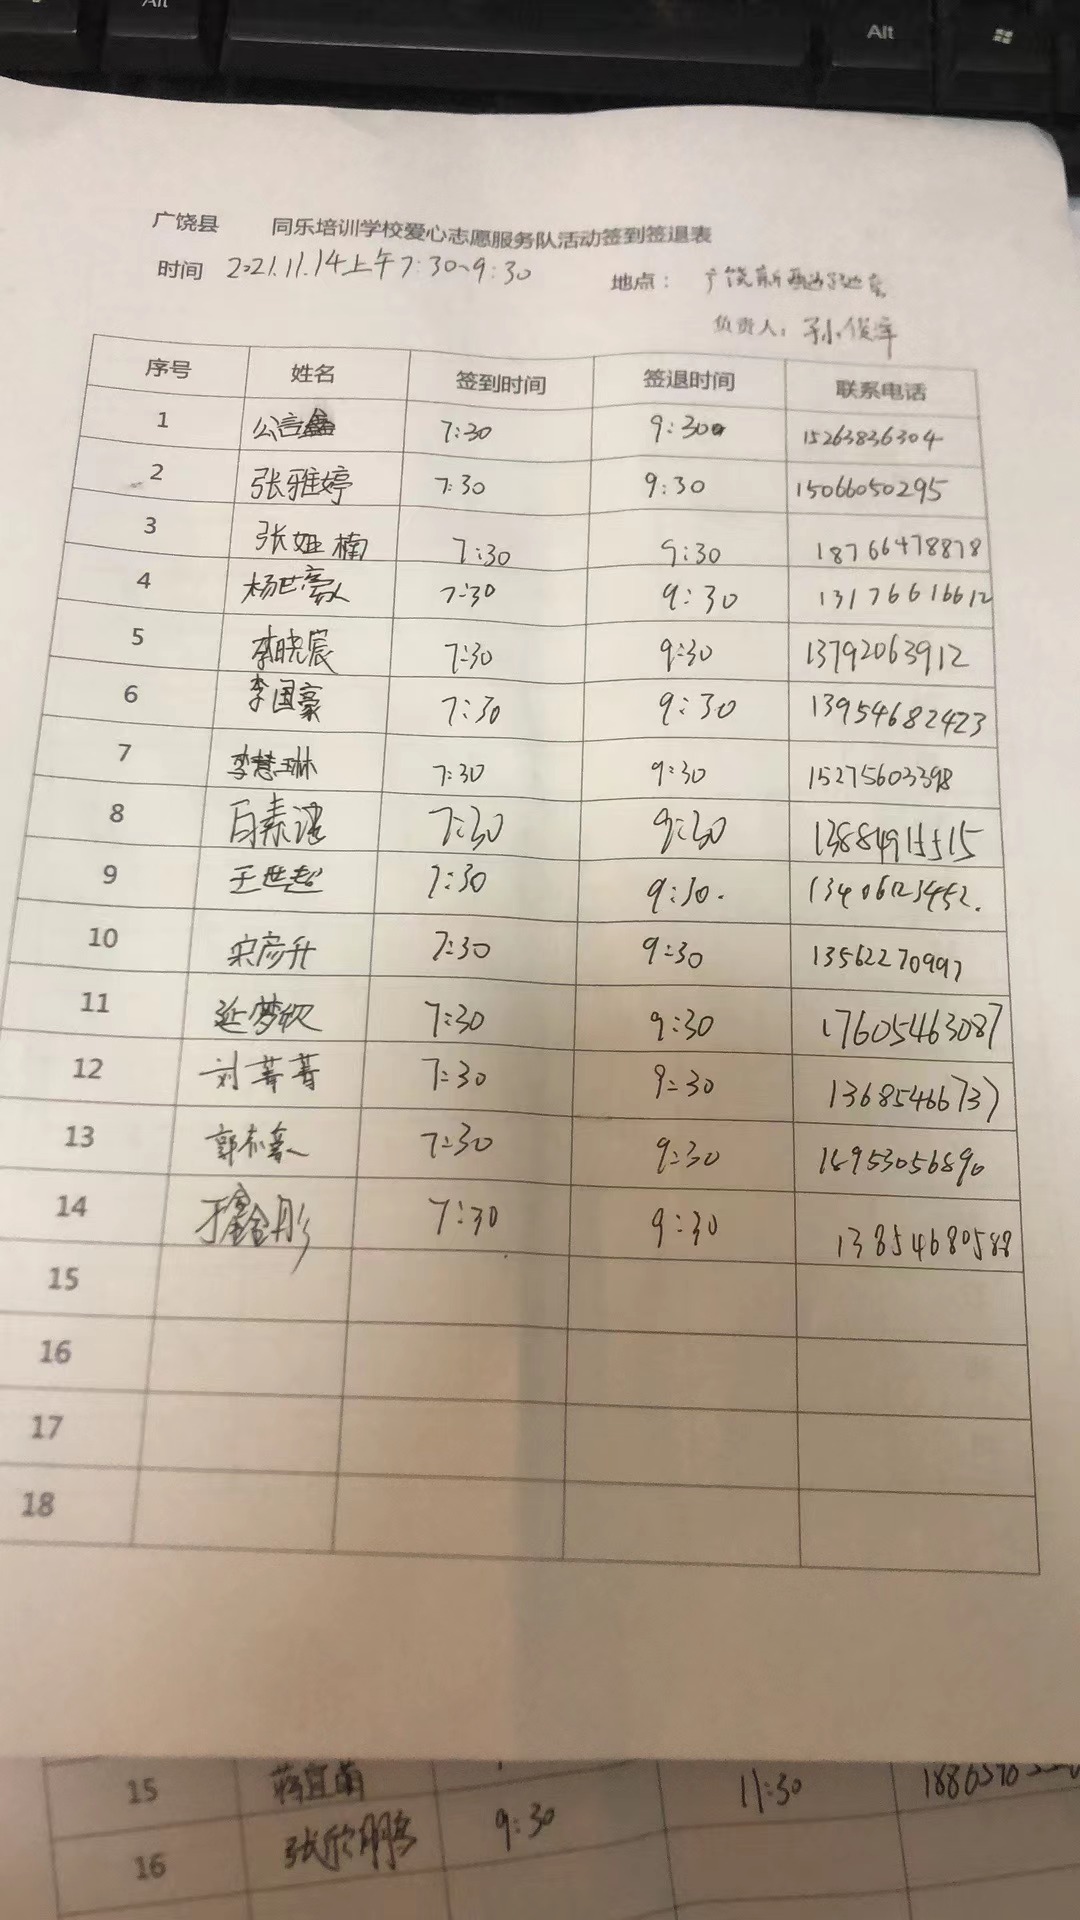 Alt
Alt
广饶县 同乐培训学校爱心志愿服务队活动签到签退表
时间 2021.11.14上午7:30~9:30 地点： 广饶新
负责人：孙俊
序号 姓名 签到时间 签退时间 联系电话
1 公言鑫 7:30 9:30 15263836304
2 张雅婷 7:30 9:30 15066050295
3 张姐楠 7:30 9:30 18766478878
4 杨世豪 7:30 9:30 13176616612
5 李晓宸 7:30 9:30 13792063912
6 李国豪 7:30 9:30 13954682423
7 李慧琳 7:30 9:30 15275603398
8 百素 7:30 9:30 13884915515
9 王世超 7:30 9:30. 13406123452.
10 宋彦升 7:30 9:30 13562270997
11 延梦 7:30 9:30 17605463087
12 刘菁菁 7:30 9:30 13685466737
13 郭 7:30 9:30 18953056890
14 于鑫彤 7:30 9:30 13854680588
15
16
17
18
15 蒋宜 11:30
16 张欣鹏 9:30